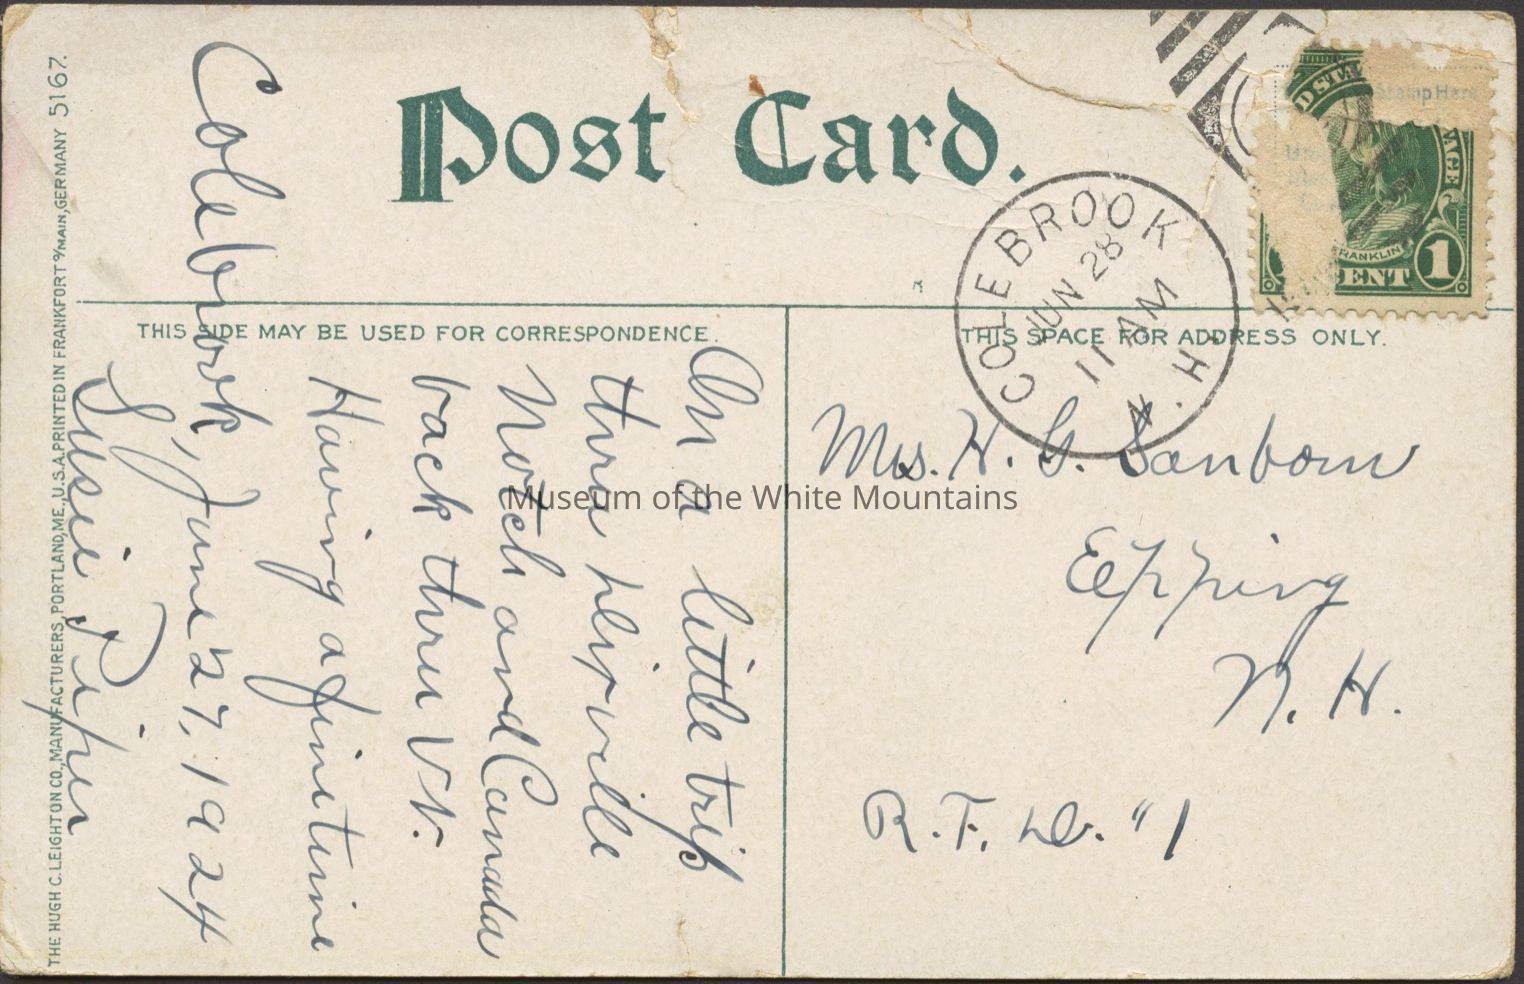 Post Card.
THIS SIDE MAY BE USED FOR CORRESPONDENCE.
THIS SPACE FOR ADDRESS ONLY.
COLEBROOK
JUN 28
11 AM
N.H.
Stamp Here
FRANKLIN
1 CENT
On a little trip
thru
Notch and Canada
back thru Vt.
Having a fine time
Colebrook, June 27, 1924
Susie Piper
Mrs. H. G. Sanborn
Epping
N. H.
R. F. D. "1
THE HUGH C. LEIGHTON CO., MANUFACTURERS, PORTLAND, ME., U.S.A. PRINTED IN FRANKFORT o/MAIN, GERMANY 5167.
Museum of the White Mountains